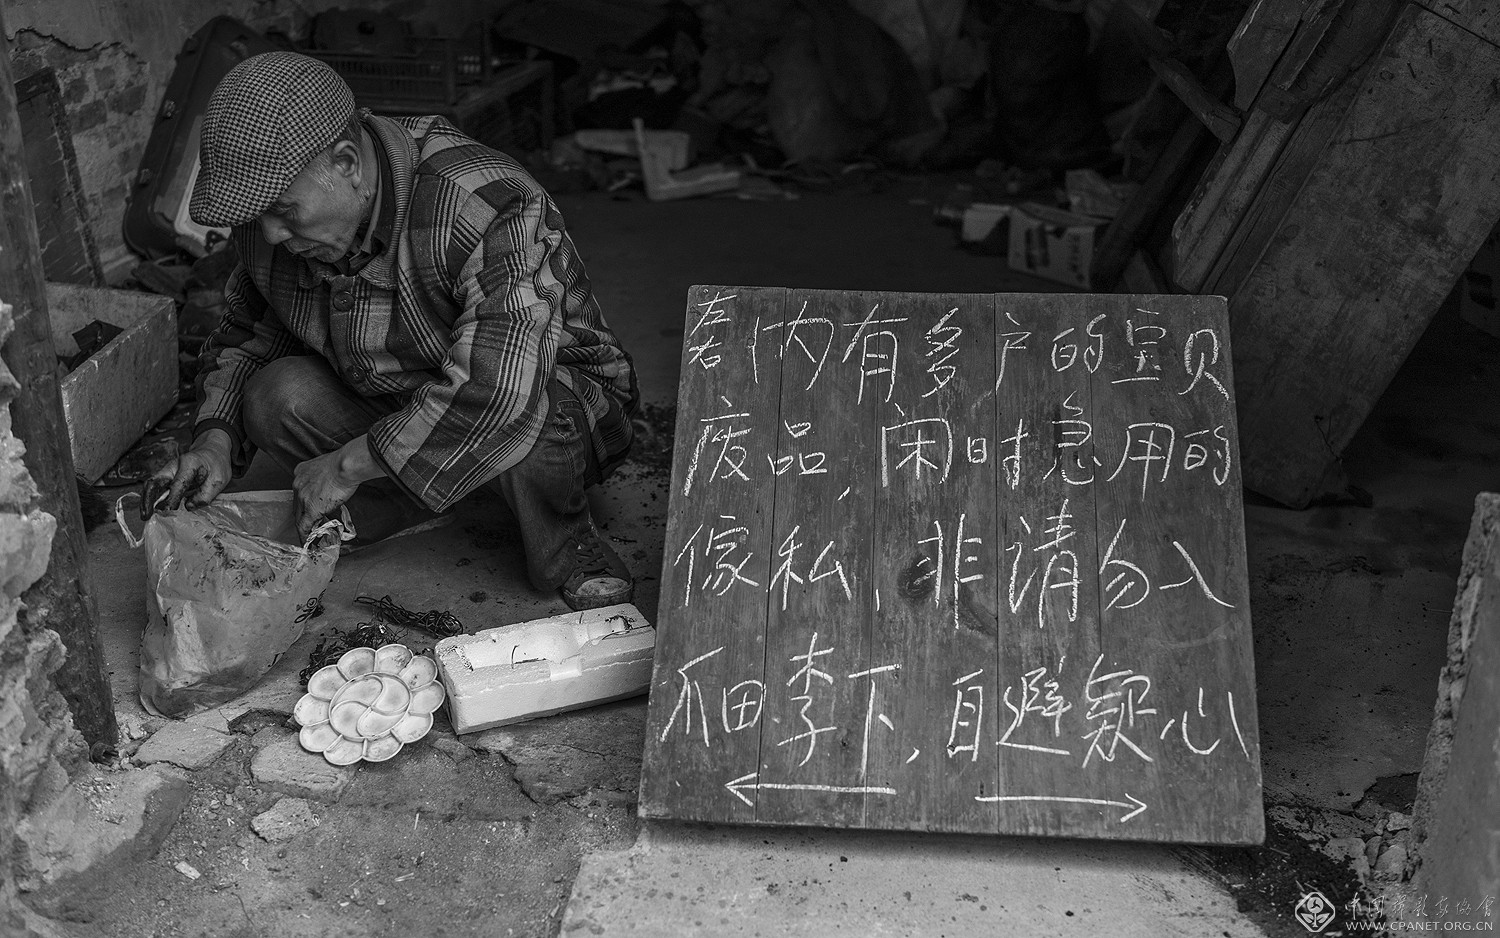 内有多户的宝贝
废品,闲时急用的
傢私,非请勿入
瓜田李下,自避疑心
← →
中国攝影家協會
WWW.CPANET.ORG.CN